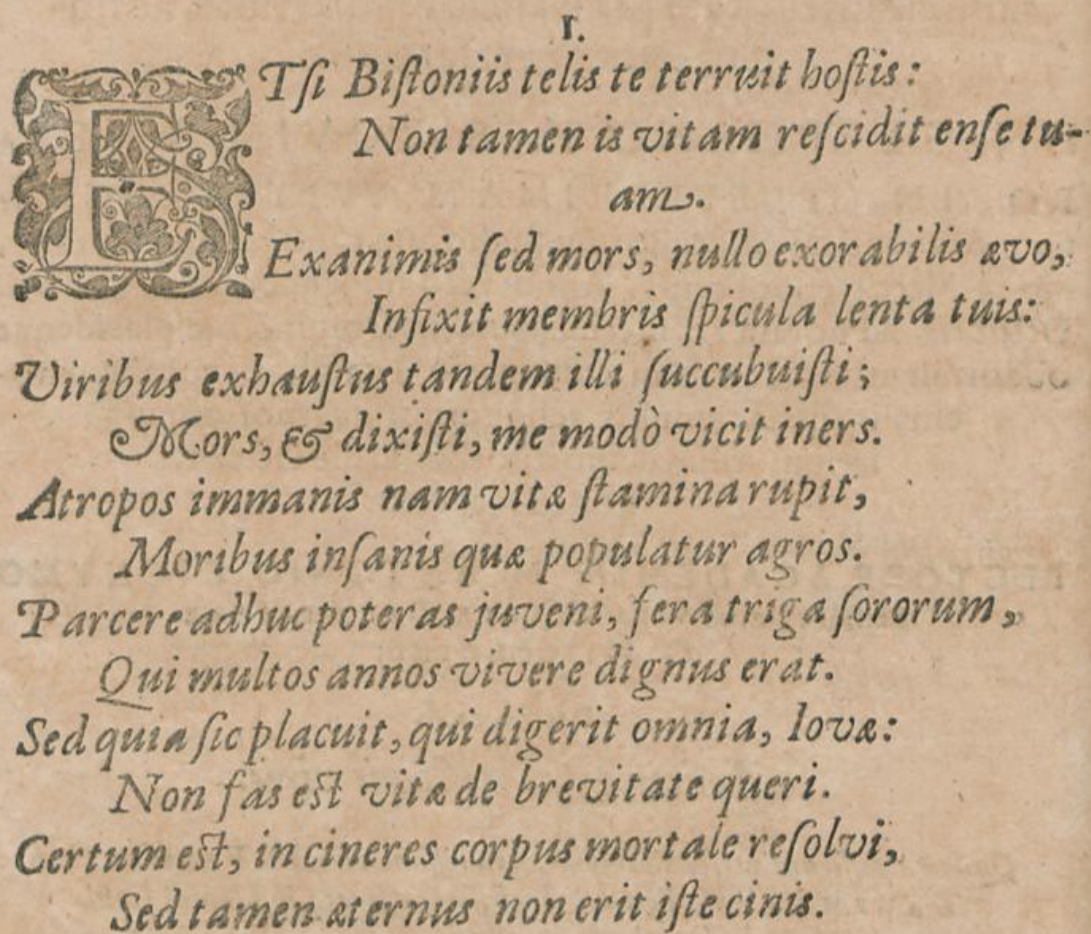 I.
ETſi Biſtoniis telis te terruit hoſtis:
Non tamen is vitam reſcidit enſe tu-
am.
Exanimis ſed mors, nullo exorabilis ævo,
Infixit membris ſpicula lenta tuis:
Viribus exhauſtus tandem illi ſuccubuiſti;
Mors, & dixiſti, me modò vicit iners.
Atropos immanis nam vitæ ſtamina rupit,
Moribus inſanis quæ populatur agros.
Parcere adhuc poteras juveni, fera triga ſororum,
Qui multos annos vivere dignus erat.
Sed quia ſic placuit, qui digerit omnia, Iovæ:
Non fas eſt vitæ de brevitate queri.
Certum eſt, in cineres corpus mortale reſolvi,
Sed tamen æternus non erit iſte cinis.